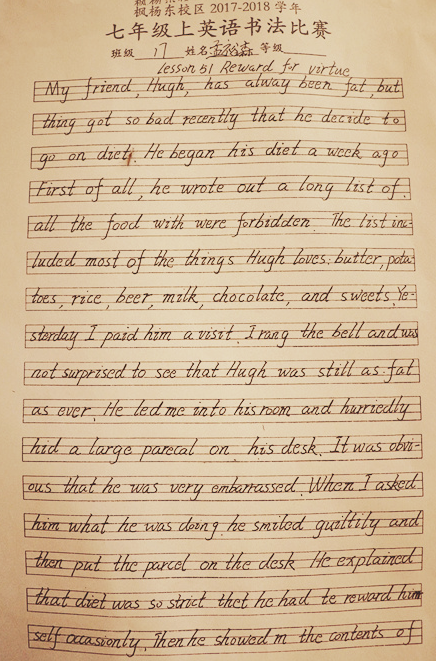 枫杨东校区 2017-2018 学年
七年级上英语书法比赛
班级 17 姓名 孟裕森 等级
Lesson 51 Reward for virtue
My friend, Hugh, has alway been fat, but
thing got so bad recently that he decide to
go on diet. He began his diet a week ago
First of all, he wrote out a long list of.
all the food with were forbidden. The list inc-
luded most of the things Hugh loves: butter, pota-
toes, rice, beer, milk, chocolate, and sweets. Ye-
sterday I paid him a visit. I rang the bell and was
not surprised to see that Hugh was still as fat
as ever. He led me into his room and hurriedly
hid a large parecal on his desk. It was obvi-
ous that he was very embarrassed. When I asked
him what he was doing, he smiled guiltily and
then put the parcel on the desk. He explained
that diet was so strict thet he had te reward him
self accasionly. Then he showed m the contents of